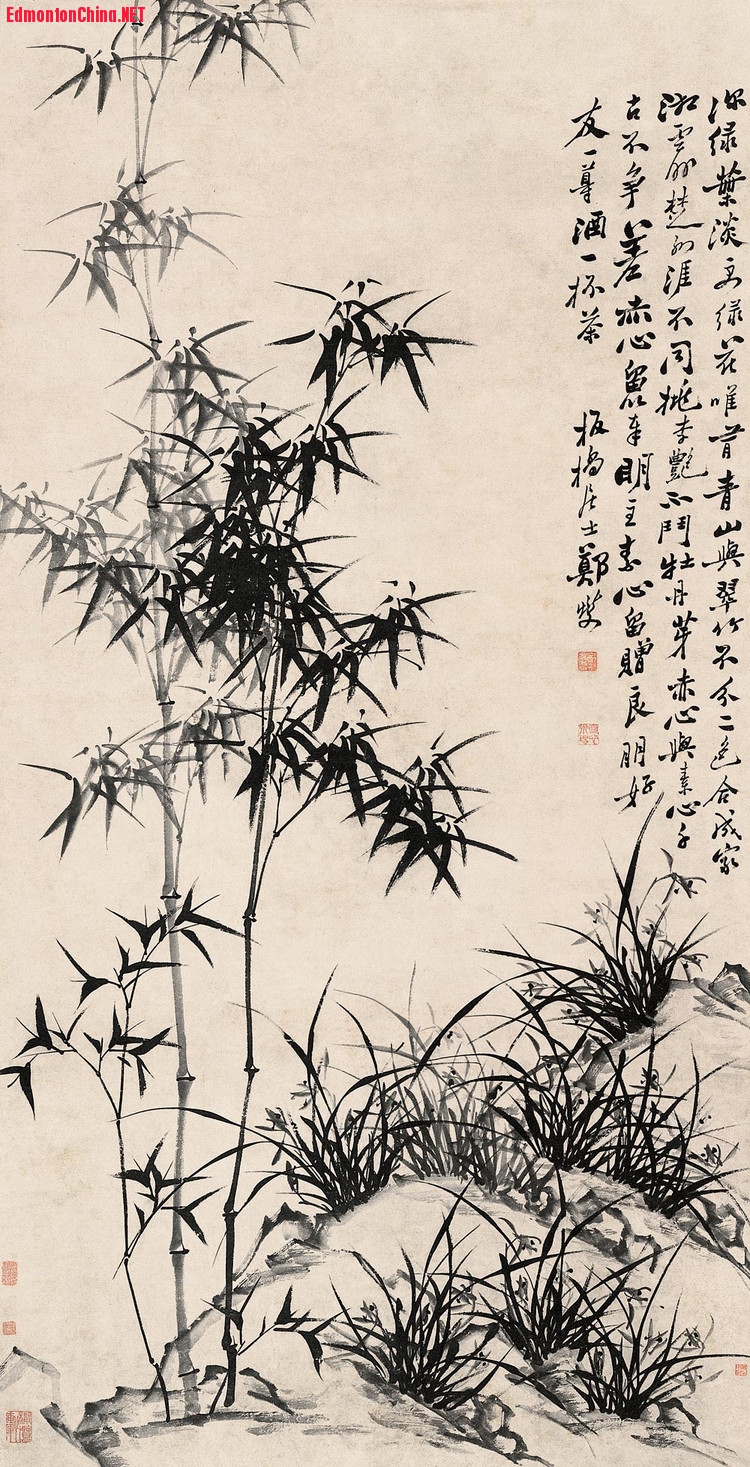 EdmontonChina.NET
深綠葉淡綠花唯青山與翠竹不分二色合成家
湘雲楚水涯不同桃李艷不鬥牡丹芽赤心與素心千
古不爭差赤心留奉明主素心留贈良朋好
友一尊酒一杯茶 板橋居士鄭燮